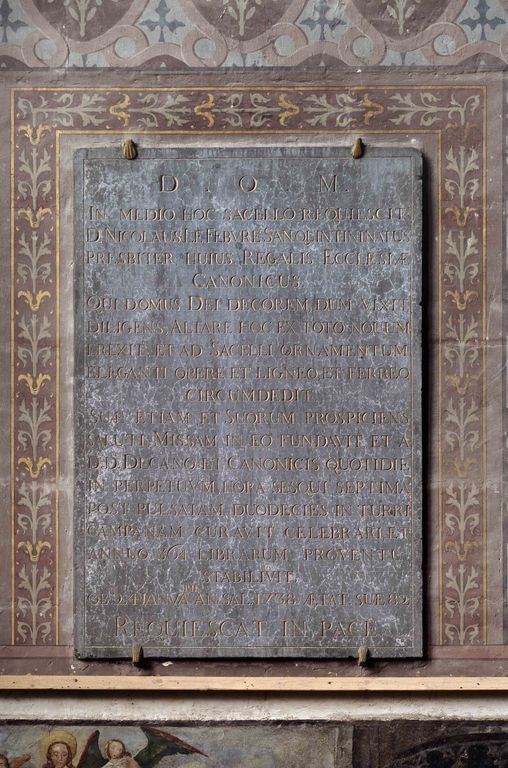 D . O . M .
IN MEDIO HOC SACELLO REQUIESCIT
D. NICOLAUS LE FEBVRE SANQUINTININATUS
PRESBITER HUIUS REGALIS ECCLESIÆ
CANONICUS
QUI DOMUS DEI DECOREM, DUM VIXIT
DILIGENS, ALTARE HOC EX TOTO NOVUM
EREXIT ET AD SACELLI ORNAMENTUM
ELEGANTI OPERE ET LIGNEO ET FERREO
CIRCUMDEDIT
SUÆ ETIAM ET SUORUM PROSPICIENS
SALUTI, MISSAM IN EO FUNDAVIT ET A
D.D. DECANO ET CANONICIS QUOTIDIE
IN PERPETUVM HORA SESQUI SEPTIMA
POST PULSATAM DUODECIES IN TURRI
CAMPANAM CURAVIT CELEBRARI, ET
ANNUO 364 LIBRARUM PROVENTU
STABILIVIT
OB. 24 JANVAR. AN. SAL. 1738. ÆTAT. SUÆ 82
REQUIESCAT IN PACE